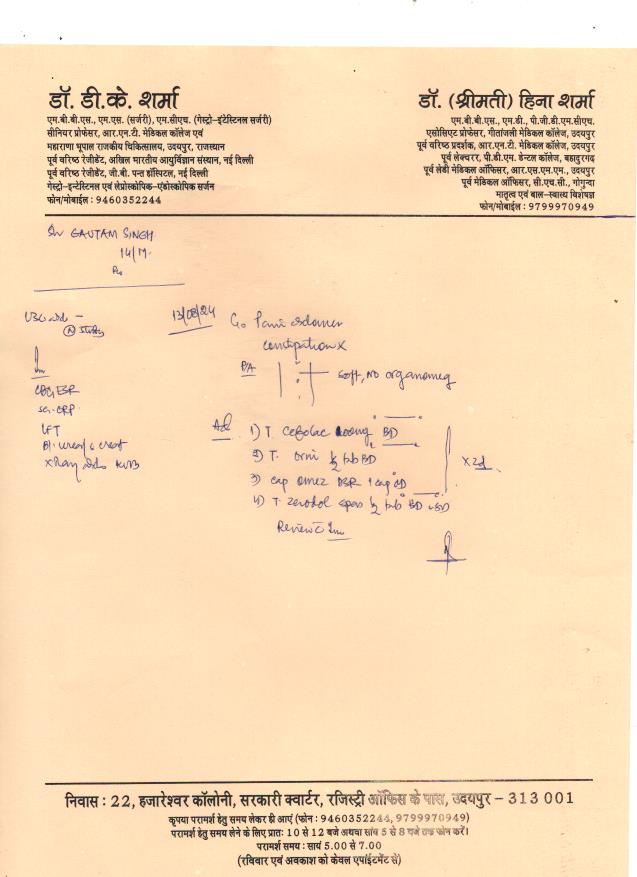 डॉ. डी.के. शर्मा
एम.बी.बी.एस., एम.एस. (सर्जरी), एम.सीएच. (गेस्ट्रो-इंटेस्टिनल सर्जरी)
सीनियर प्रोफेसर, आर.एन.टी. मेडिकल कॉलेज एवं
महाराणा भूपाल राजकीय चिकित्सालय, उदयपुर, राजस्थान
पूर्व वरिष्ठ रेजीडेंट, अखिल भारतीय आयुर्विज्ञान संस्थान, नई दिल्ली
पूर्व वरिष्ठ रेजीडेंट, जी.बी. पन्त हॉस्पिटल, नई दिल्ली
गेस्ट्रो-इन्टेस्टिनल एवं लेप्रोस्कोपिक-एंडोस्कोपिक सर्जन
फोन/मोबाईल : 9460352244
डॉ. (श्रीमती) हिना शर्मा
एम.बी.बी.एस., एम.डी., पी.जी.डी.एम.सीएच.
एसोसिएट प्रोफेसर, गीतांजली मेडिकल कॉलेज, उदयपुर
पूर्व वरिष्ठ प्रदर्शक, आर.एन.टी. मेडिकल कॉलेज, उदयपुर
पूर्व लेक्चरर, पी.डी.एम. डेन्टल कॉलेज, बहादुरगढ
पूर्व लेडी मेडिकल ऑफिसर, आर.एस.एम.एम., उदयपुर
पूर्व मेडिकल ऑफिसर, सी.एच.सी., गोगुन्दा
मातृत्व एवं बाल-स्वास्थ्य विशेषज्ञ
फोन/मोबाईल : 9799970949
GAUTAM SINGH
14/M
13/08/24
C/o Pain abdomen
constipation X
P/A
soft, NO organomeg
CBC, ESR
CRP
LFT
Bl. urea / s creat
Xray abdo KUB
Ad
1) T. Cefolac 200mg BD
2) T. orni ½ tab BD
3) cap omez DSR 1 cap OD
4) T. zerodol spas ½ tab BD
X 2d
Review c
निवास : 22, हजारेश्वर कॉलोनी, सरकारी क्वार्टर, रजिस्ट्री ऑफिस के पास, उदयपुर - 313 001
कृपया परामर्श हेतु समय लेकर ही आएं (फोन : 9460352244, 9799970949)
परामर्श हेतु समय लेने के लिए प्रातः 10 से 12 बजे अथवा सायं 5 से 8 बजे तक फोन करें।
परामर्श समय : सायं 5.00 से 7.00
(रविवार एवं अवकाश को केवल एपॉइंटमेंट से)